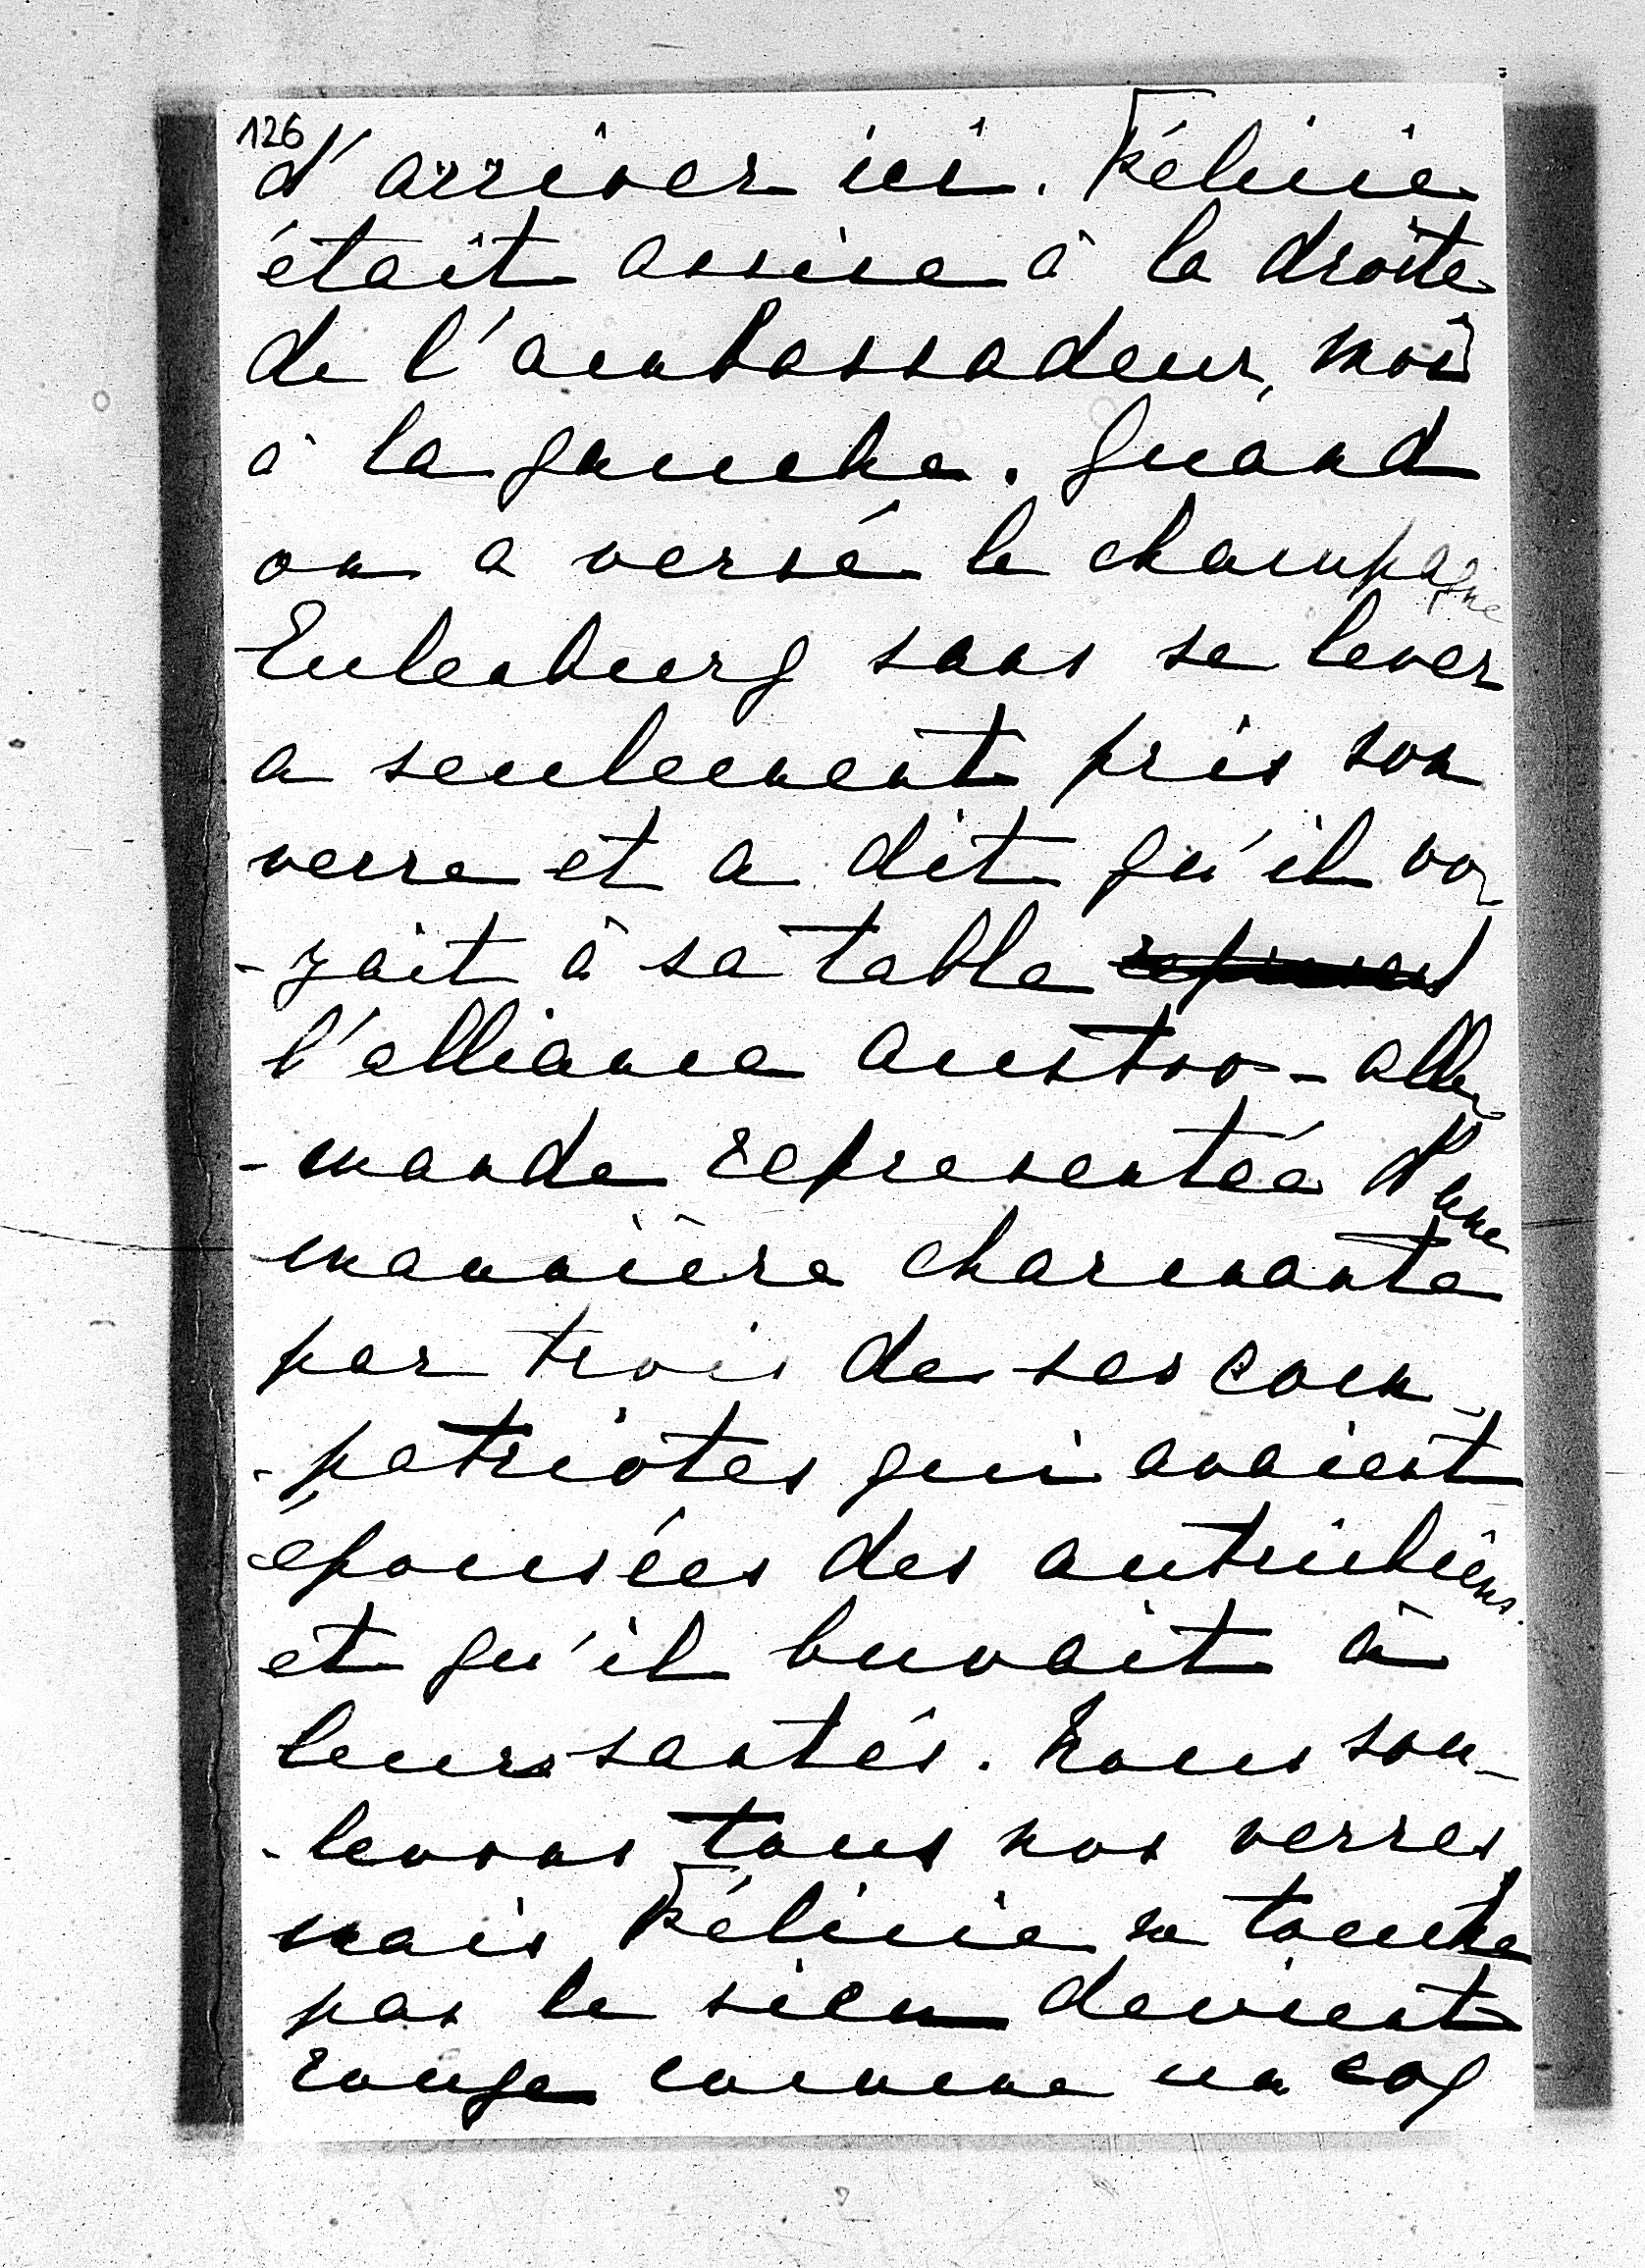 126
d'arriver ici. Félicie
était assise à la droite
de l'ambassadeur, moi
à la gauche. Quand
on a versé le champagne
Eulenburg sans se lever
a seulement pris son
verre et a dit qu'il vo
-yait à sa table
l'alliance austro-alle
-mande representée d'une
mannière charmante
par trois de ses com-
-patriotes qui avaient
épousées des autrichiens.
et qu'il buvait à
leurs santés. Nous sou-
-levons tous nos verres,
mais Félicie ne touche
pas le sien devient
rouge comme un coq